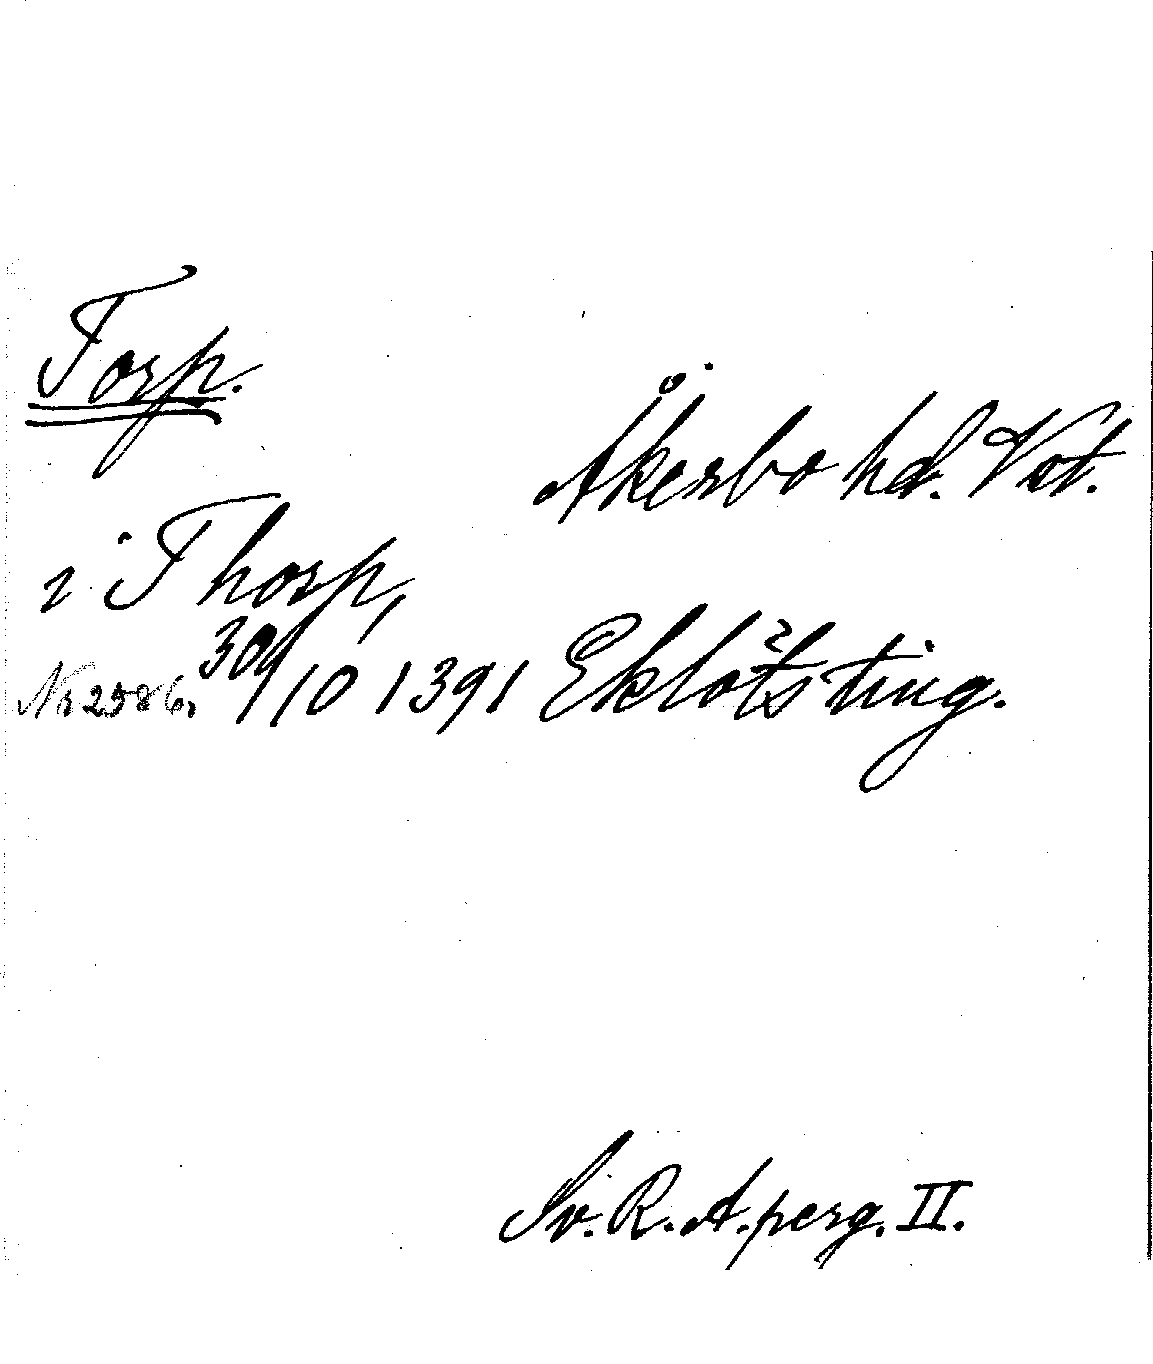 Torp.
Åkerbo hd. Vst.
i Thorp,
Nr 2586. 30/10 1391 Eklötsting.
Sv. R. A. perg. II.